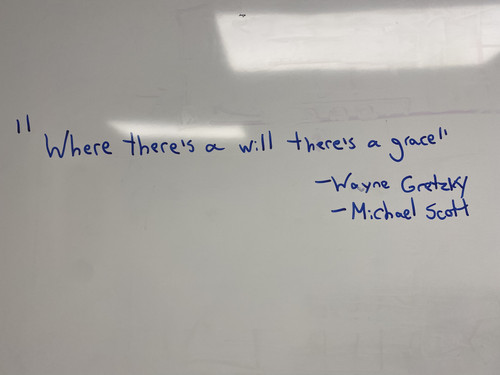 "Where there's a will there's a grace"
-Wayne Gretzky
-Michael Scott